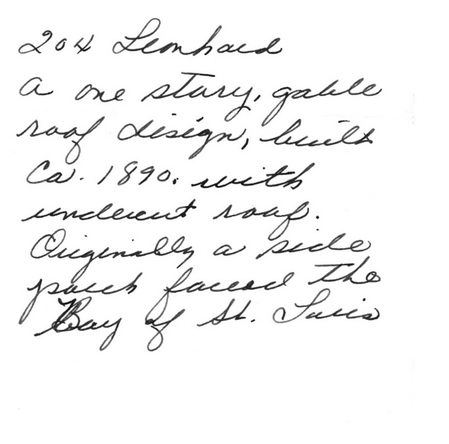 204 Leonhard
A one story, gable
roof disign, built
Ca. 1890. with
undercut roof.
Originally a side
porch faced the
Bay of St. Louis